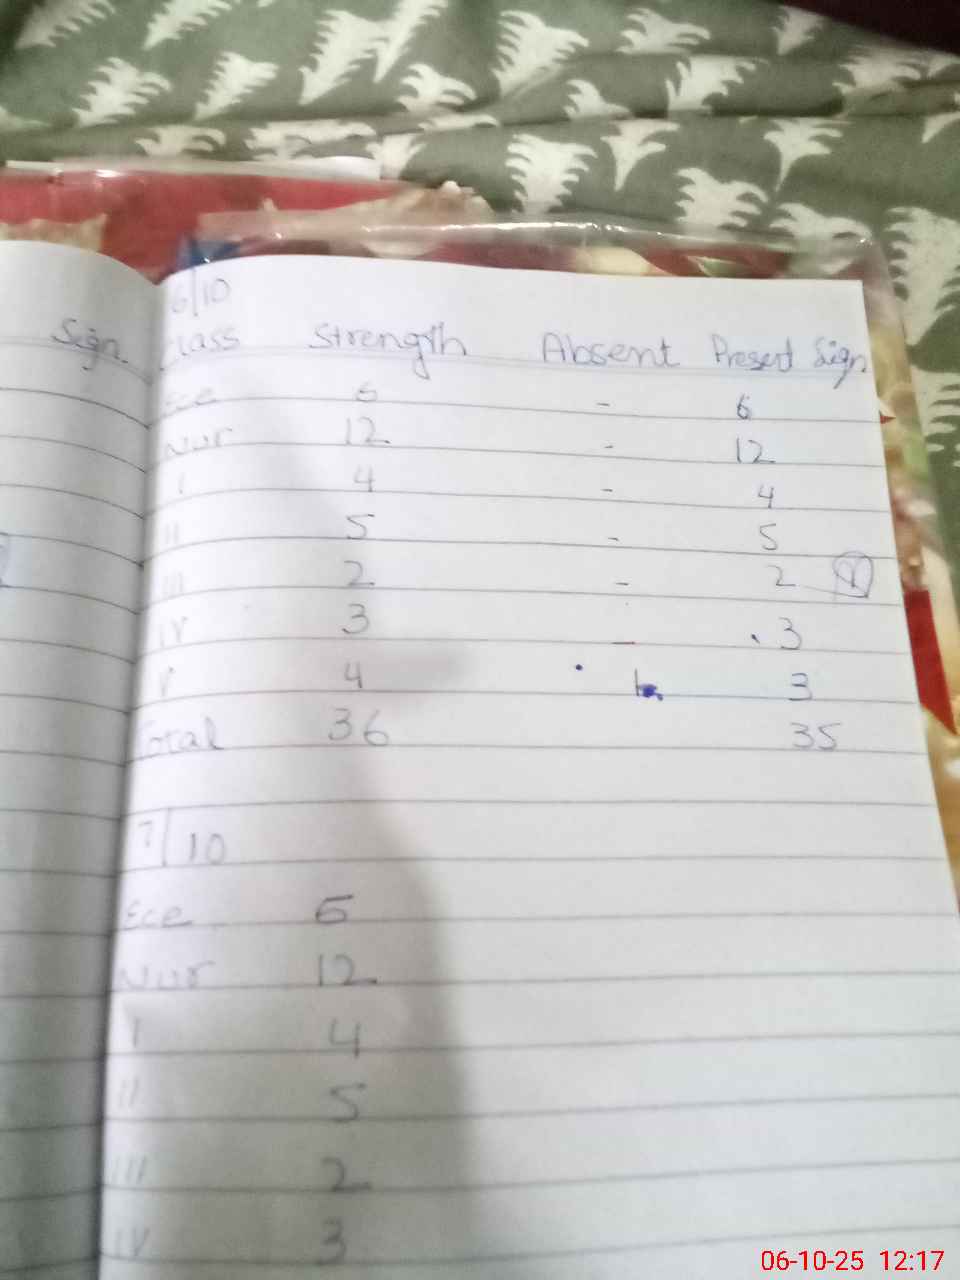 Sign
6/10
Class Strength Absent Present Sign
Ece 6 - 6
Nur 12 - 12
I 4 - 4
II 5 - 5
III 2 - 2
IV 3 - 3
V 4 1 3
Total 36 35
7/10
Ece 6
Nur 12
I 4
II 5
III 2
IV 3
06-10-25 12:17